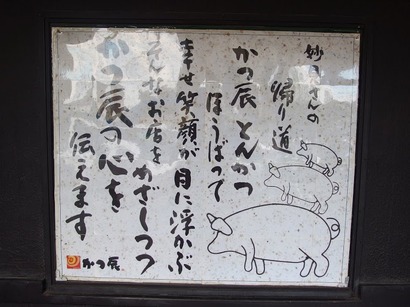 妙見さんの
帰り道
かつ辰とんかつ
ほうばって
幸せ笑顔が目に浮かぶ
そんなお店をめざしつつ
かつ辰の心を
伝えます
かつ辰